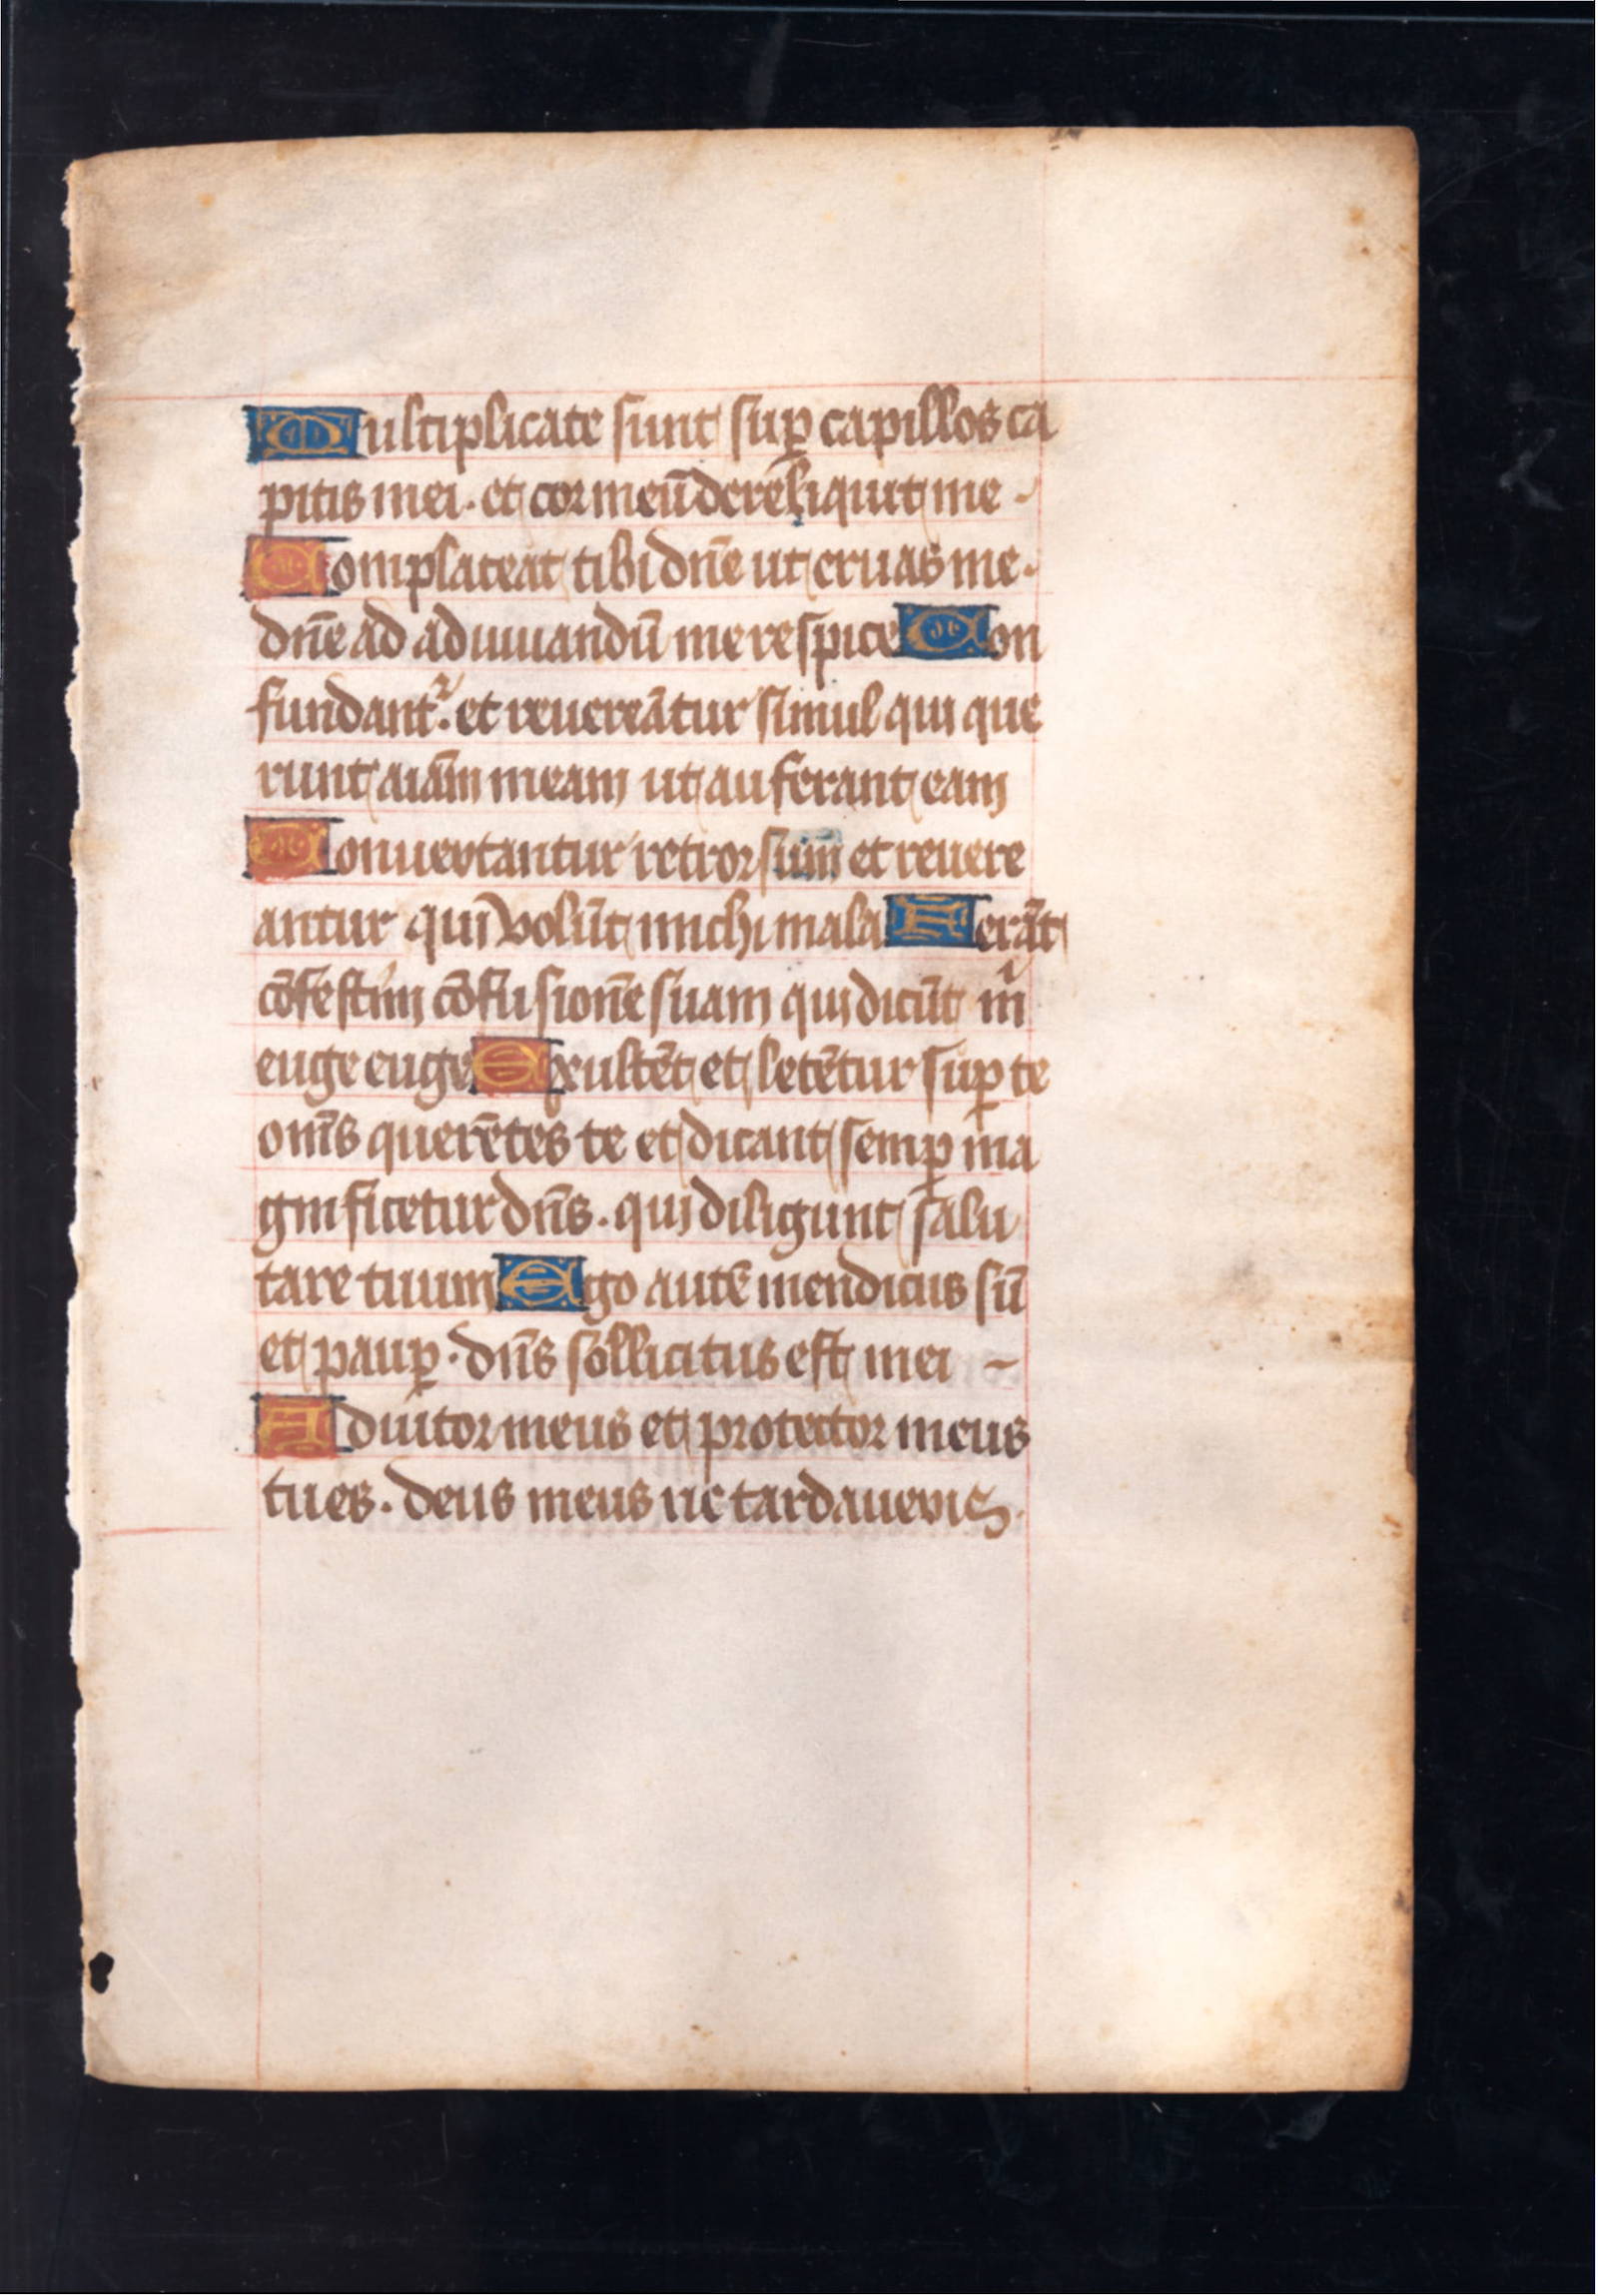 Multiplicate sunt sup̱ capillos ca
pitis mei · et cor meū dereliquit me
Complaceat tibi dn̄e ut eruas me ·
dn̄e ad adiuuandū me respice Con
fundant᷑ · et reuereātur simul qui que
runt aīam meam ut auferant eam
Conuertantur retrorsum et reuere
antur qui volūt michi mala Ferāt
cōfestim cōfusionē suam qui dicūt m̄
euge euge Exultēt et letētur sup̱ te
om̄s querētes te et dicant semp̱ ma
gnificetur dn̄s · qui diligunt salu
tare tuum Ego autē mendicus sū
et paup̱ · dn̄s sollicitus est mei
Adiutor meus et protector meus
tu es · deus meus ne tardaueris ·